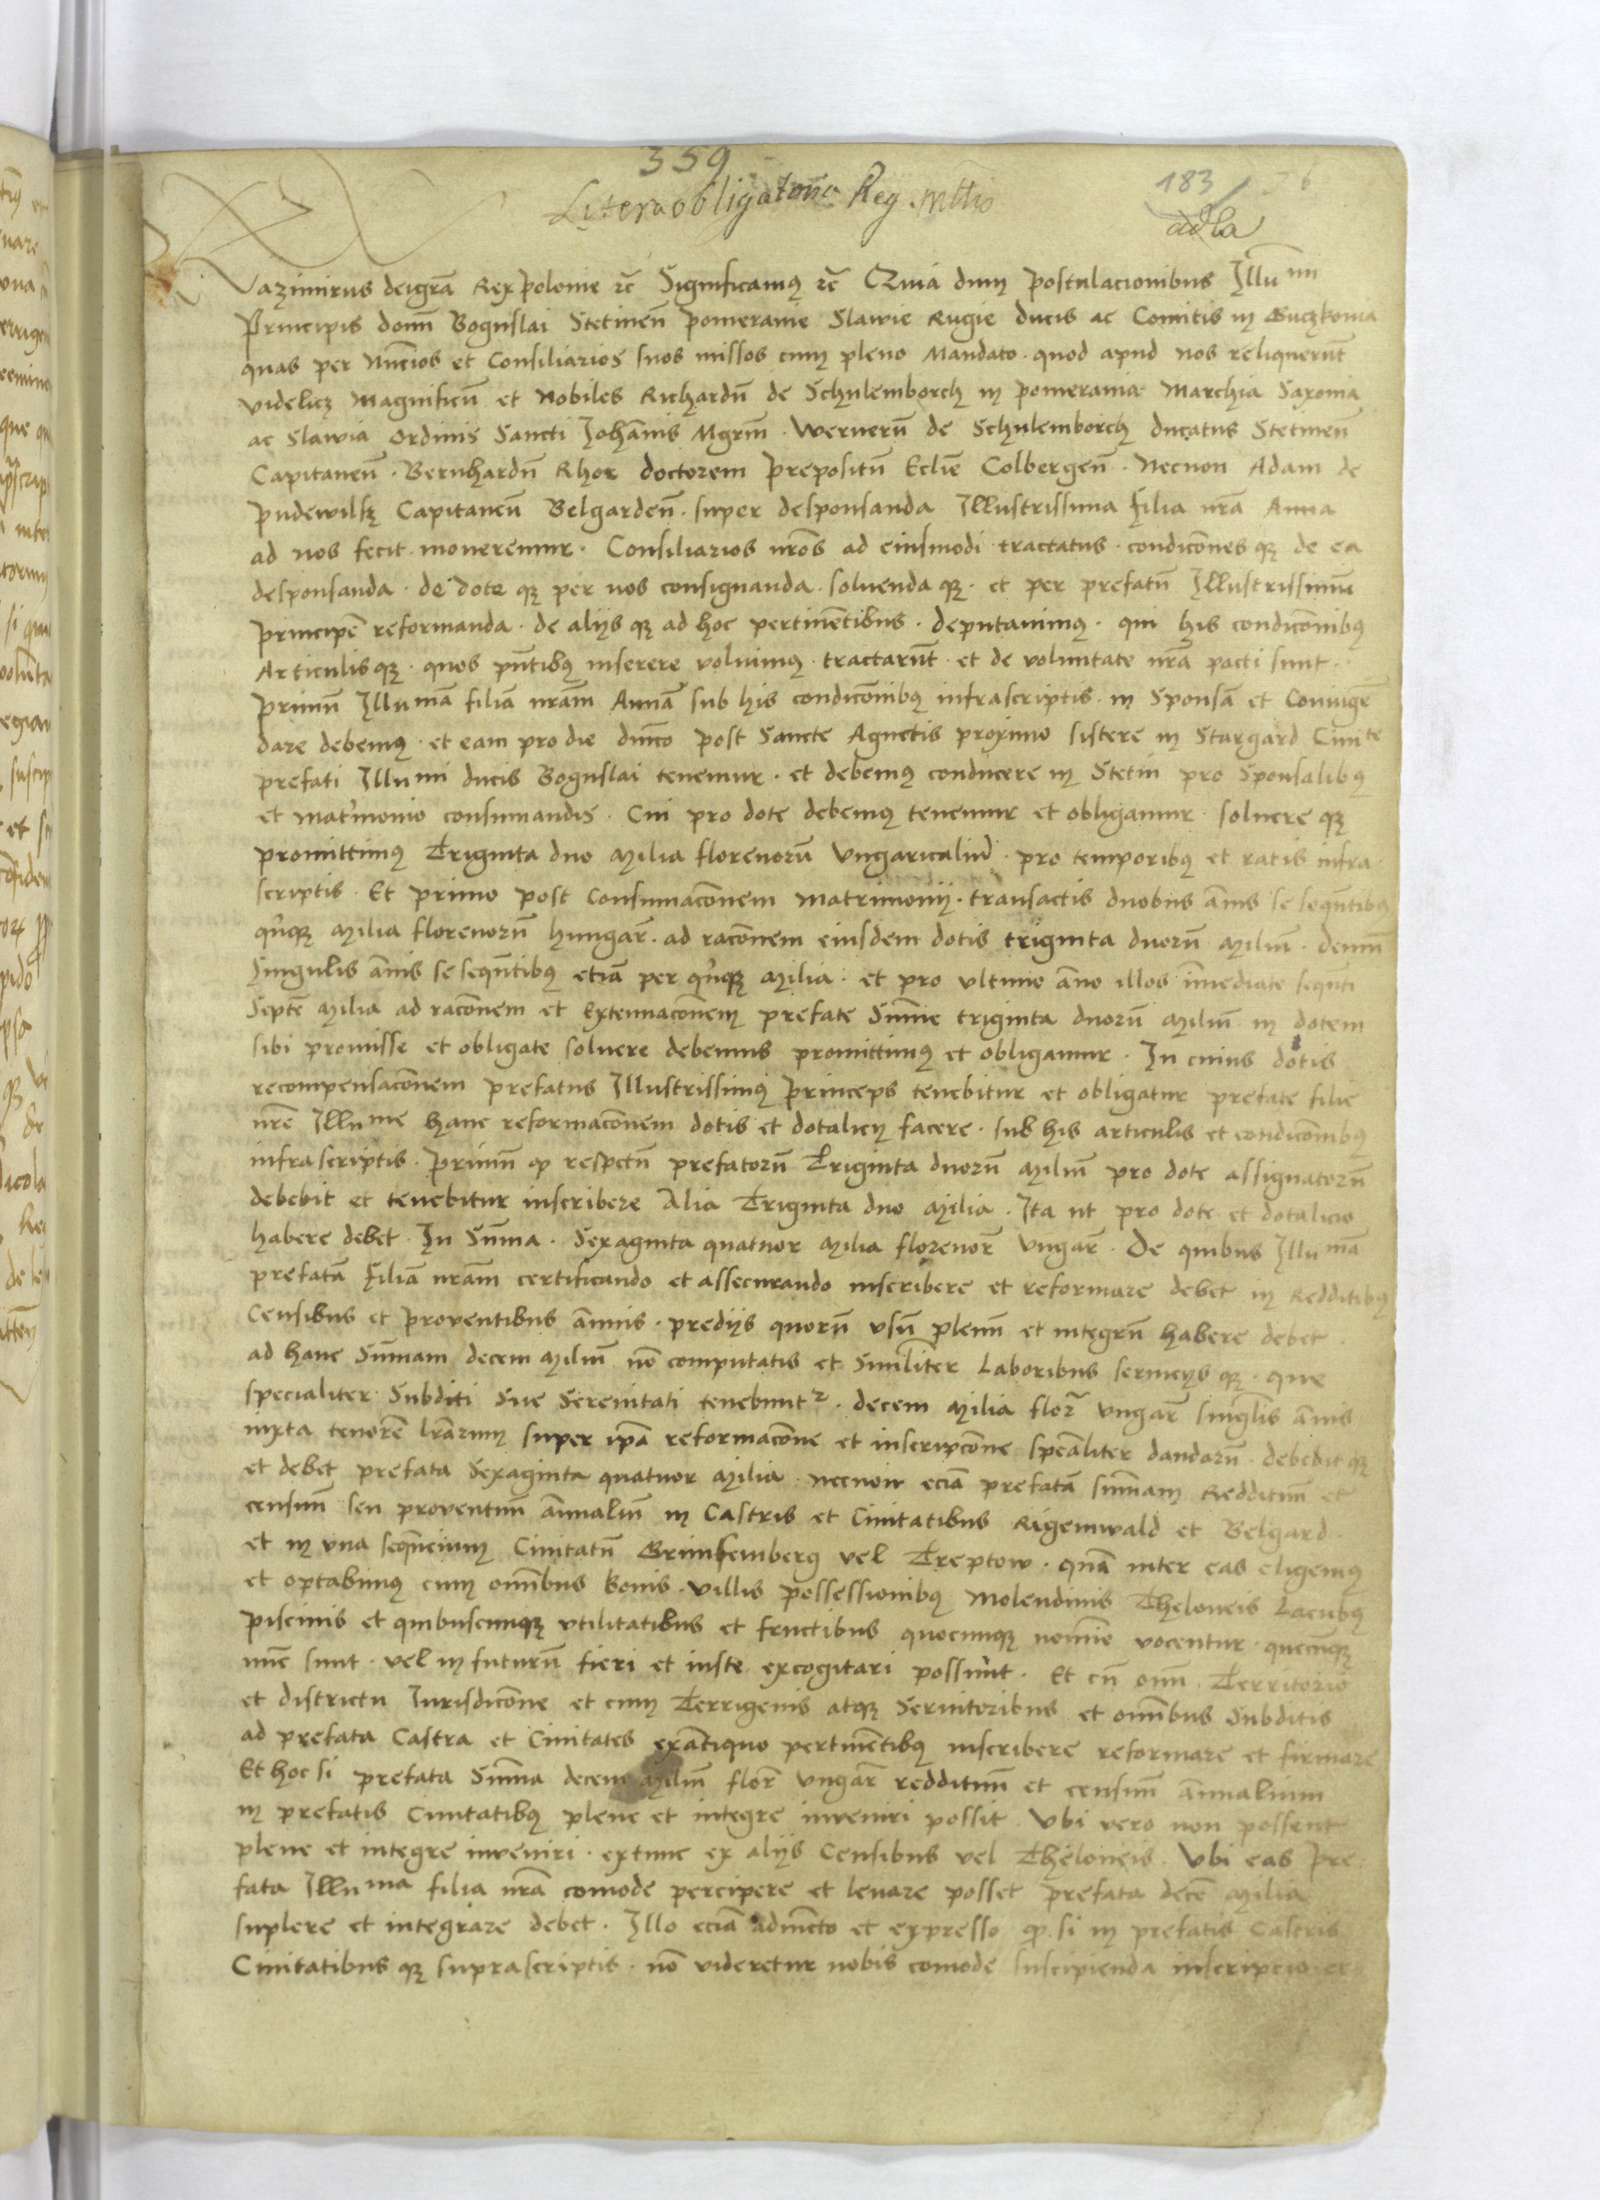 359
Litera obligatoria Reg.
183
Kazimirus dei gra Rex polonie rc Significamq rc Quia dum postulacionibus Illumi
Principis domi Boguslai Stetinen pomeranie Slawie Rugie ducis ac Comitis in Guczkonia
quas per Nuncios et Consiliarios suos missos cum pleno Mandato · quod apud nos reliquerut
videlicz Magnificu et Nobiles Richardu de Schulemborch in pomerania Marchia Saxonia
ac Slawia ordinis Sancti Johanis Mgrm · Werneru de Schulemborch ducatus Stetinen
Capitaneu · Bernhardu Rhor doctorem prepositu Eclie Colbergen · Necnon Adam de
pudewilsz Capitaneu Belgarden · super desponsanda Illustrissima filia nra Anna
ad nos fecit moveremur · Consiliarios nros ad eiusmodi tractatus · condicones qz de ea
desponsanda · de dote qz per nos consignanda · soluenda qz · et per prefatu Illustrissimu
principe reformanda · de alijs qz ad hoc pertinetibus · deputauimq · qui his condiconibq
Articulis qz · quos pntibq inserere voluimq · tractarut · et de voluntate nra pacti sunt ·
Primu Illumam filia nram Anna sub his condiconibq infrascriptis · in Sponsa et Coniuge
dare debemq · et eam pro die dinco post Sancte Agnetis proximo sistere in Stargard Ciuite
prefati Illumi ducis Boguslai tenemur · et debemq conducere in Stetin pro Sponsalibq
et matrimonio consumandis · Cui pro dote debemq tenemur et obligamur · soluere qz
promittimq Triginta duo Milia florenoru Vngaricaliu · pro temporibq et ratis infra
scriptis · Et primo post Consumaconem Matrimonij · transactis duobus anis se sequtibq
quqz Milia florenoru hungar · ad raconem eiusdem dotis triginta duoru Miliu · demu
singulis anis se sequtibq etia per quqz Milia · et pro vltimo ano illos imediate sequti
Septe Milia ad raconem et Extenuaconem prefate Sume triginta duoru Miliu in dotem
sibi promisse et obligate soluere debemus promittimq et obligamur · In cuius dotis
recompensaconem prefatus Illustrissimq princeps tenebitur et obligatur prefate filie
nre Illume hanc reformaconem dotis et dotalicij facere · sub his articulis et condiconibq
infrascriptis · Primu qp respctu prefatoru Triginta duoru Miliu pro dote assignatoru
debebit et tenebitur inscribere Alia Triginta duo Milia · Ita ut pro dote et dotalicio
habere debet · In Suma · Sexaginta quatuor Milia florenor Vngar · De quibus Illuma
prefata filia nram certificando et assecurando inscribere et reformare debet in Redditibq
Censibus et proventibus annis · predijs quoru vsu plenu et integru habere debet
ad hanc Sumam decem Miliu no computatis et Similiter Laboribus seruicijs qz · que
specialiter Subditi Sue Serenitati tenebuntr · decem Milia flor Vngar singlis anis
iuxta tenore lrarum super ipa reformacone et inscripcone specaliter dandaru · debebit qz
et debet prefata Sexaginta quatuor Milia · necnon ecia prefata sumam Reddituu et
censuu seu proventuu annaliu in Castris et Ciuitatibus Rigemwald et Belgard ·
et in vna sequncium Ciuitatu Grimfemberg vel Treptow · qua inter eas eligemq
et optabimq cum omibus bonis · villis possessionibq Molendinis Theloneis Lacubq
piscinis et quibuscumqz vtilitatibus et fructibus quocumqz nomine vocentur · quecuqz
nuc sunt · vel in futuru fieri et iuste excogitari possunt · Et cu omi Territorio
et districtu Iurisdicone et cum Terrigenis atqz Seruitoribus et omibus Subditis
ad prefata Castra et Ciuitates exatiquo pertinetibq inscribere reformare et firmare
Et hoc si prefata Suma decem Miliu flor Vngar reddituu et censuu annalium
in prefatis Ciuitatibq plene et integre inveniri possit Vbi vero non possent
plene et integre inveniri · extunc ex alijs Censibus vel Theloneis · Vbi eas pre
fata Illuma filia nra comode percipere et leuare posset prefata dece Milia
suplere et integrare debet · Illo ecia adiuncto et expresso qp si in prefatis Castris
Ciuitatibus qz suprascriptis · no videretur nobis comode suscipienda inscripcio